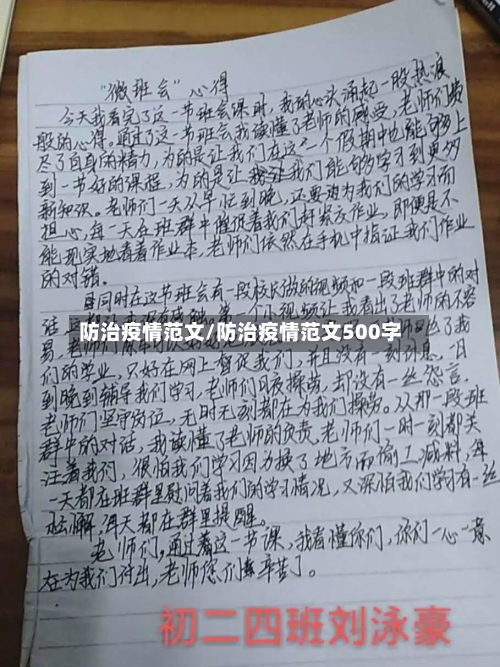 "微班会"心得
今天我看完了这一节班会课时，我的心头涌起一股热浪
般的心得。通过了这一节班会我读懂了老师的感受，老师们费
尽了自身的精力，为的是让我们在这一个假期中也能够上
到一节好的课程，为的是让我们能够学习到更多的
新知识。老师们一天从早忙到晚，还要为我们的学习而
担心，每一天在班群中催促着我们赶紧交作业，即便是不
能现实地看着作业本，老师们依然在手机中指证我们作业
的对错。
且同时在这节班会有一段校长做的视频和一段班群中的对
防治疫情范文/防治疫情范文500字
们的学业，只好在网上督促我们，并且没有一刻休息，一日
到晚到辅导我们学习，老师们日夜操劳，却没有一丝怨言，
老师们坚守岗位，无时无刻都在为我们操劳。从那一段班
群中的对话，我读懂了老师的负责，老师们一时一刻都关
注着我们，很怕我们学习因为换了地方而偷工减料，每
一天都在班群里慰问着我们的学习情况，又深怕我们学习有一丝
松懈，每天都在群里提醒。
老师们，通过着这一节课，我看懂你们，你们一心一意
在为我们付出，老师您们辛苦了。
初二四班刘泳豪